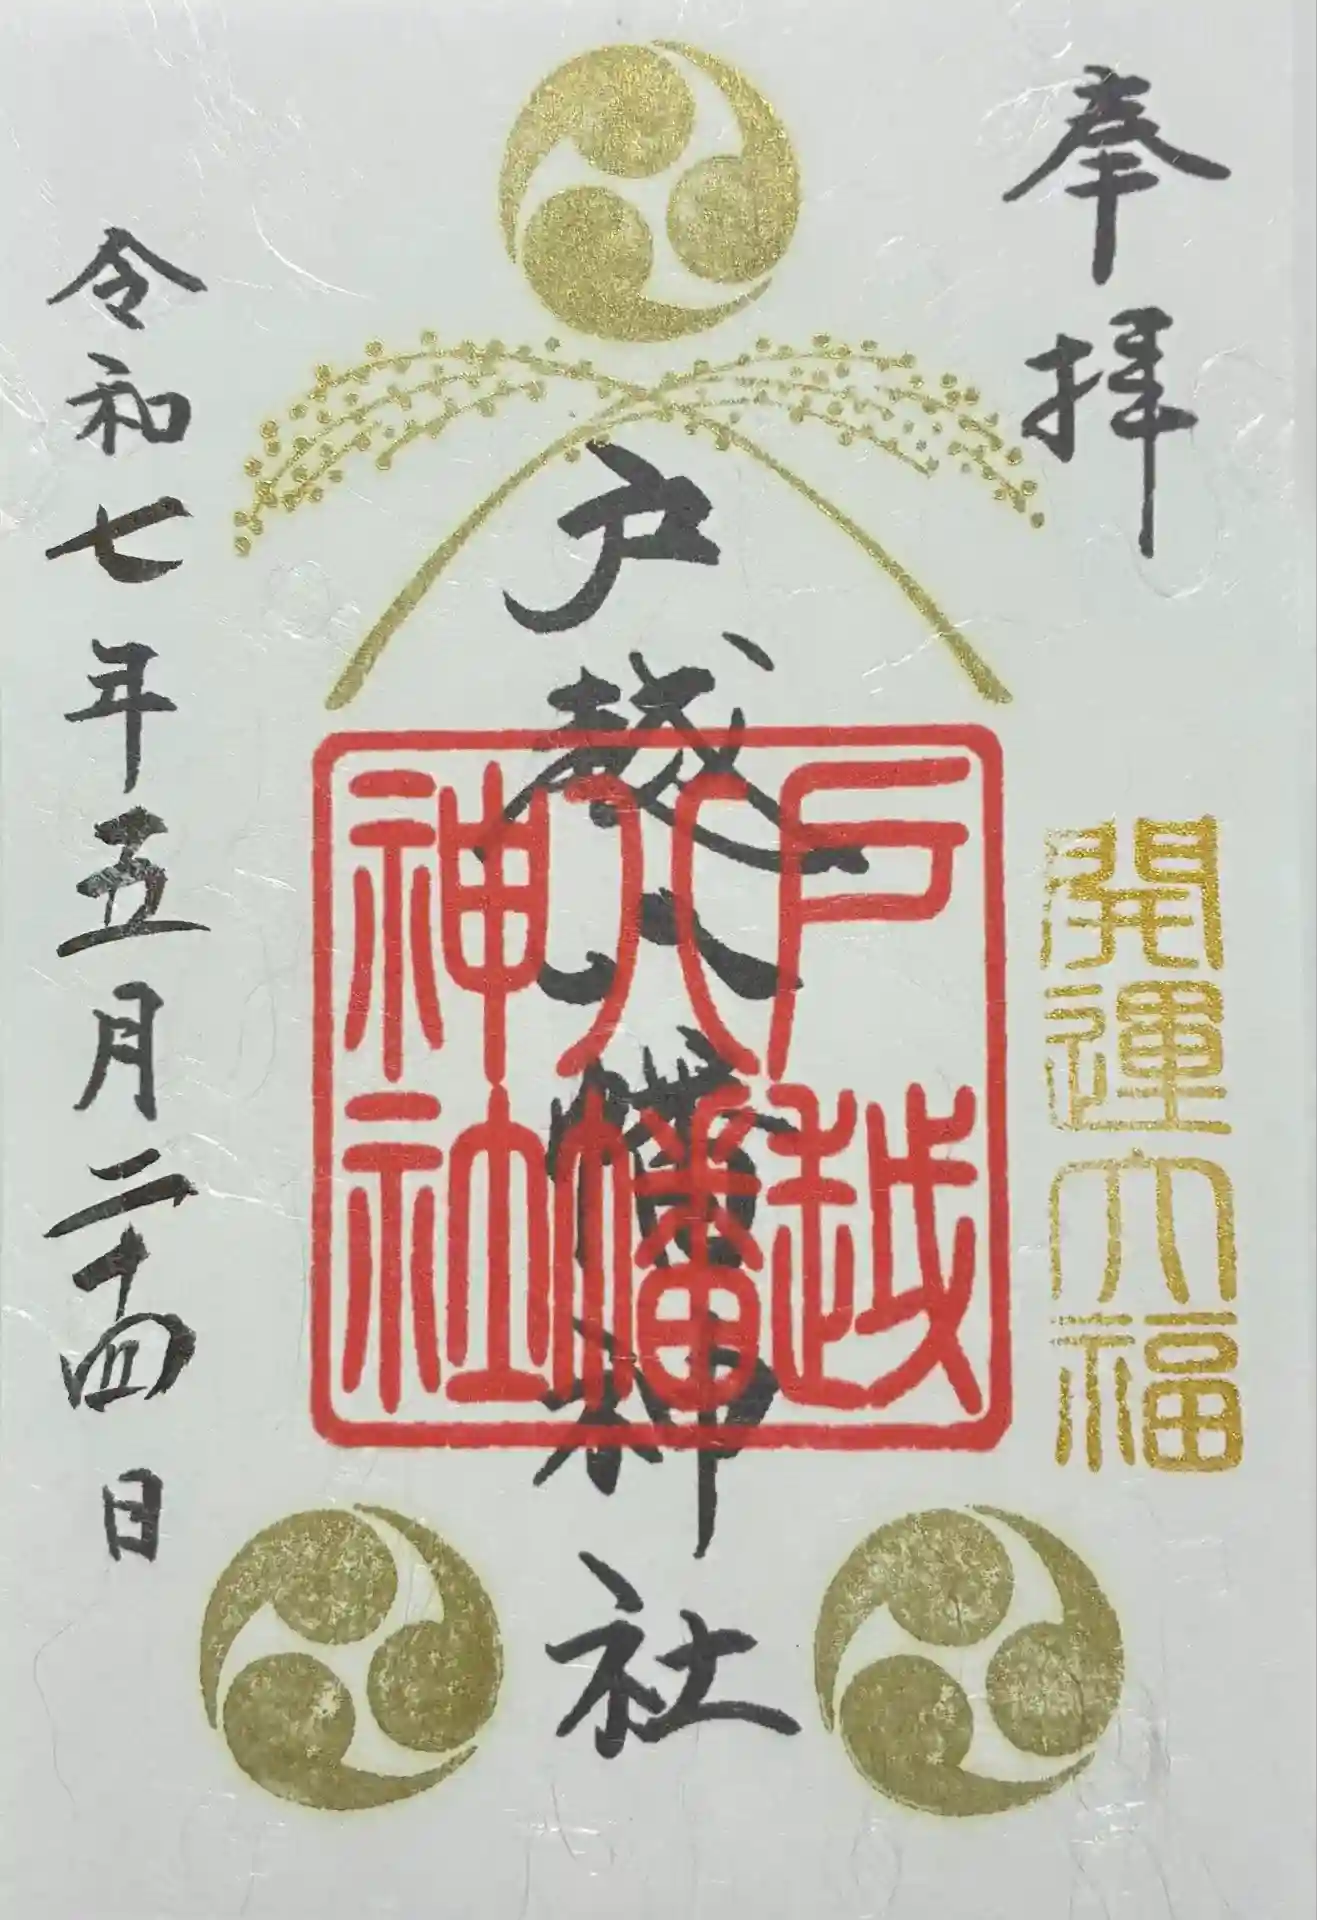 奉拝
開運大福
戸越八幡神社
戸越
八幡
神社
令和七年五月二十四日